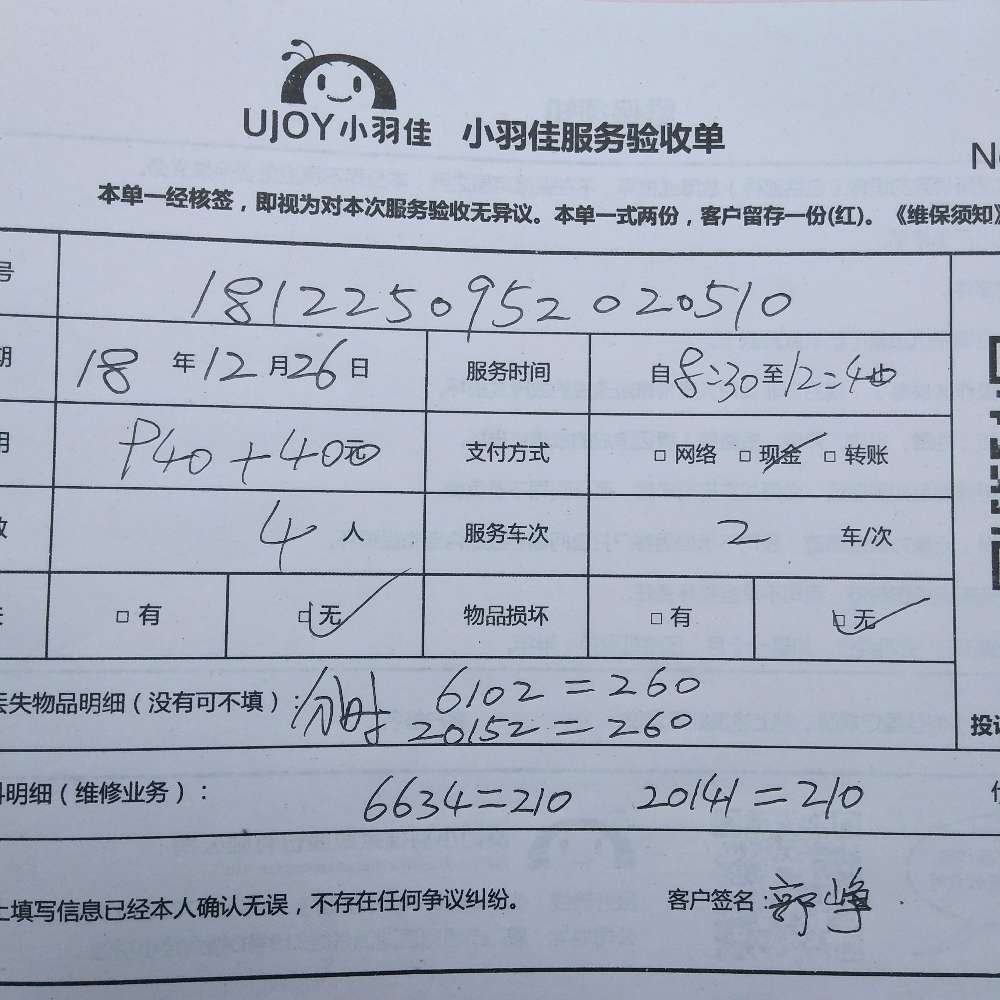 UJOY小羽佳 小羽佳服务验收单
本单一经核签，即视为对本次服务验收无异议。本单一式两份，客户留存一份(红)。《维保须知》
号 181225095202 0510
期 18年12月26日 服务时间 自8:30至12:40
用 940+40元 支付方式 □ 网络 □ 现金 □ 转账
数 4人 服务车次 2 车/次
□ 有 □ 无 物品损坏 □ 有 □ 无
丢失物品明细（没有可不填）: 分时 6102=260
20152=260 投诉
料明细（维修业务）: 6634=210 20141=210
上填写信息已经本人确认无误，不存在任何争议纠纷。 客户签名:郭峰